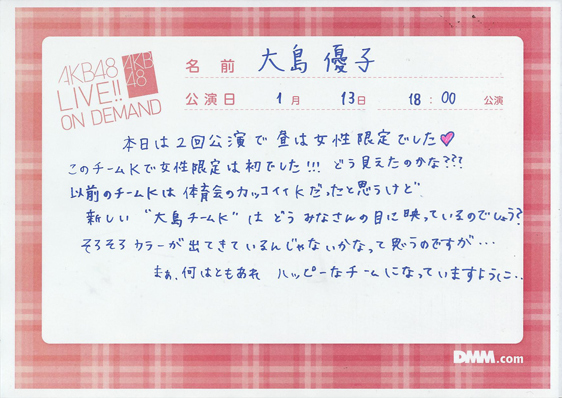 AKB48
LIVE!!
ON DEMAND
AKB
48
名前 大島 優子
公演日 1月 13日 18:00 公演
本日は2回公演で昼は女性限定でした
このチームKで女性限定は初でした!!! どう見えたのかな???
以前のチームKは体育会のカッコイイKだったと思うけど
新しい "大島チームK" は どう みなさんの目に映っているのでしょう?
そろそろカラーが出てきているんじゃないかなって思うのですが...
まぁ、何はともあれ ハッピーなチームになっていますように..
DMM.com